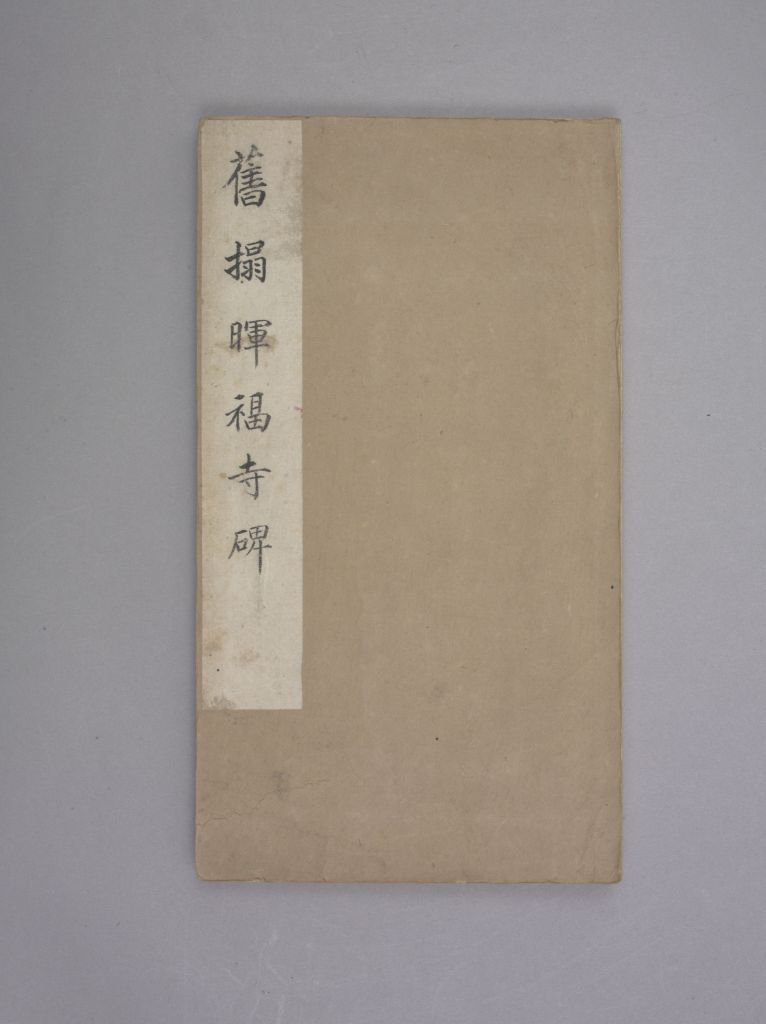 舊搨暉福寺碑